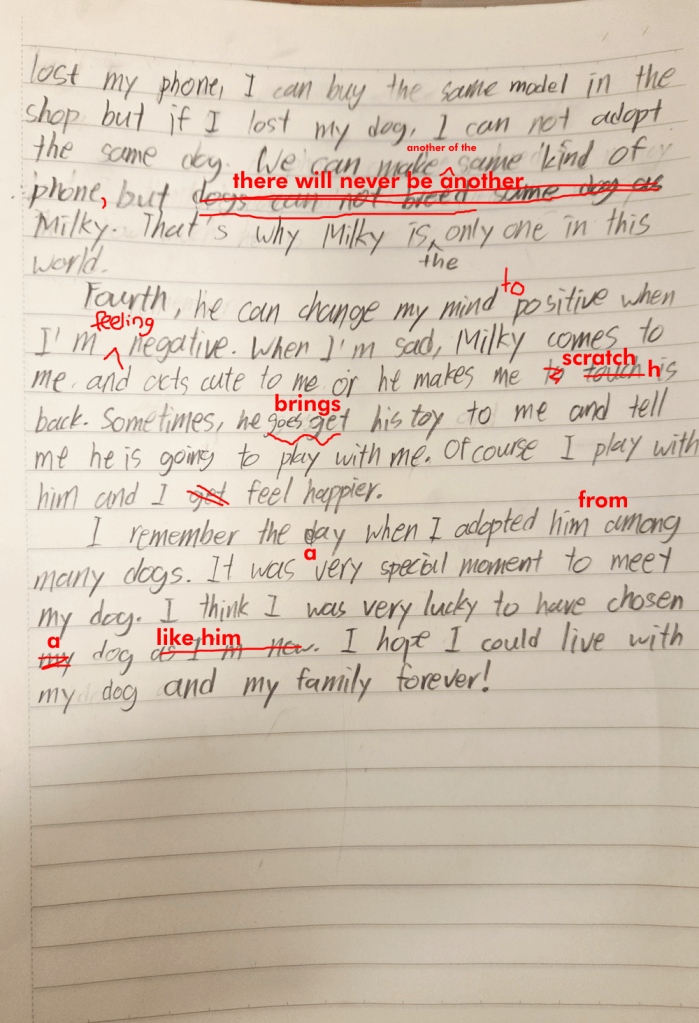 lost my phone, I can buy the same model in the
shop but if I lost my dog, I can not adopt
another of the
the same dog. We can make same kind of
there will never be another
phone, but dogs can not breed same dog as
Milky. That's why Milky is, only one in this
the
world.
to
Fourth, he can change my mind positive when
feeling
I'm negative. When I'm sad, Milky comes to
scratch
me and acts cute to me or he makes me to touch his
brings
back. Sometimes, he goes get his toy to me and tell
me he is going to play with me. Of course I play with
him and I get feel happier.
from
I remember the day when I adopted him among
a
many dogs. It was very special moment to meet
my dog. I think I was very lucky to have chosen
a like him
my dog as I'm now. I hope I could live with
my dog and my family forever!